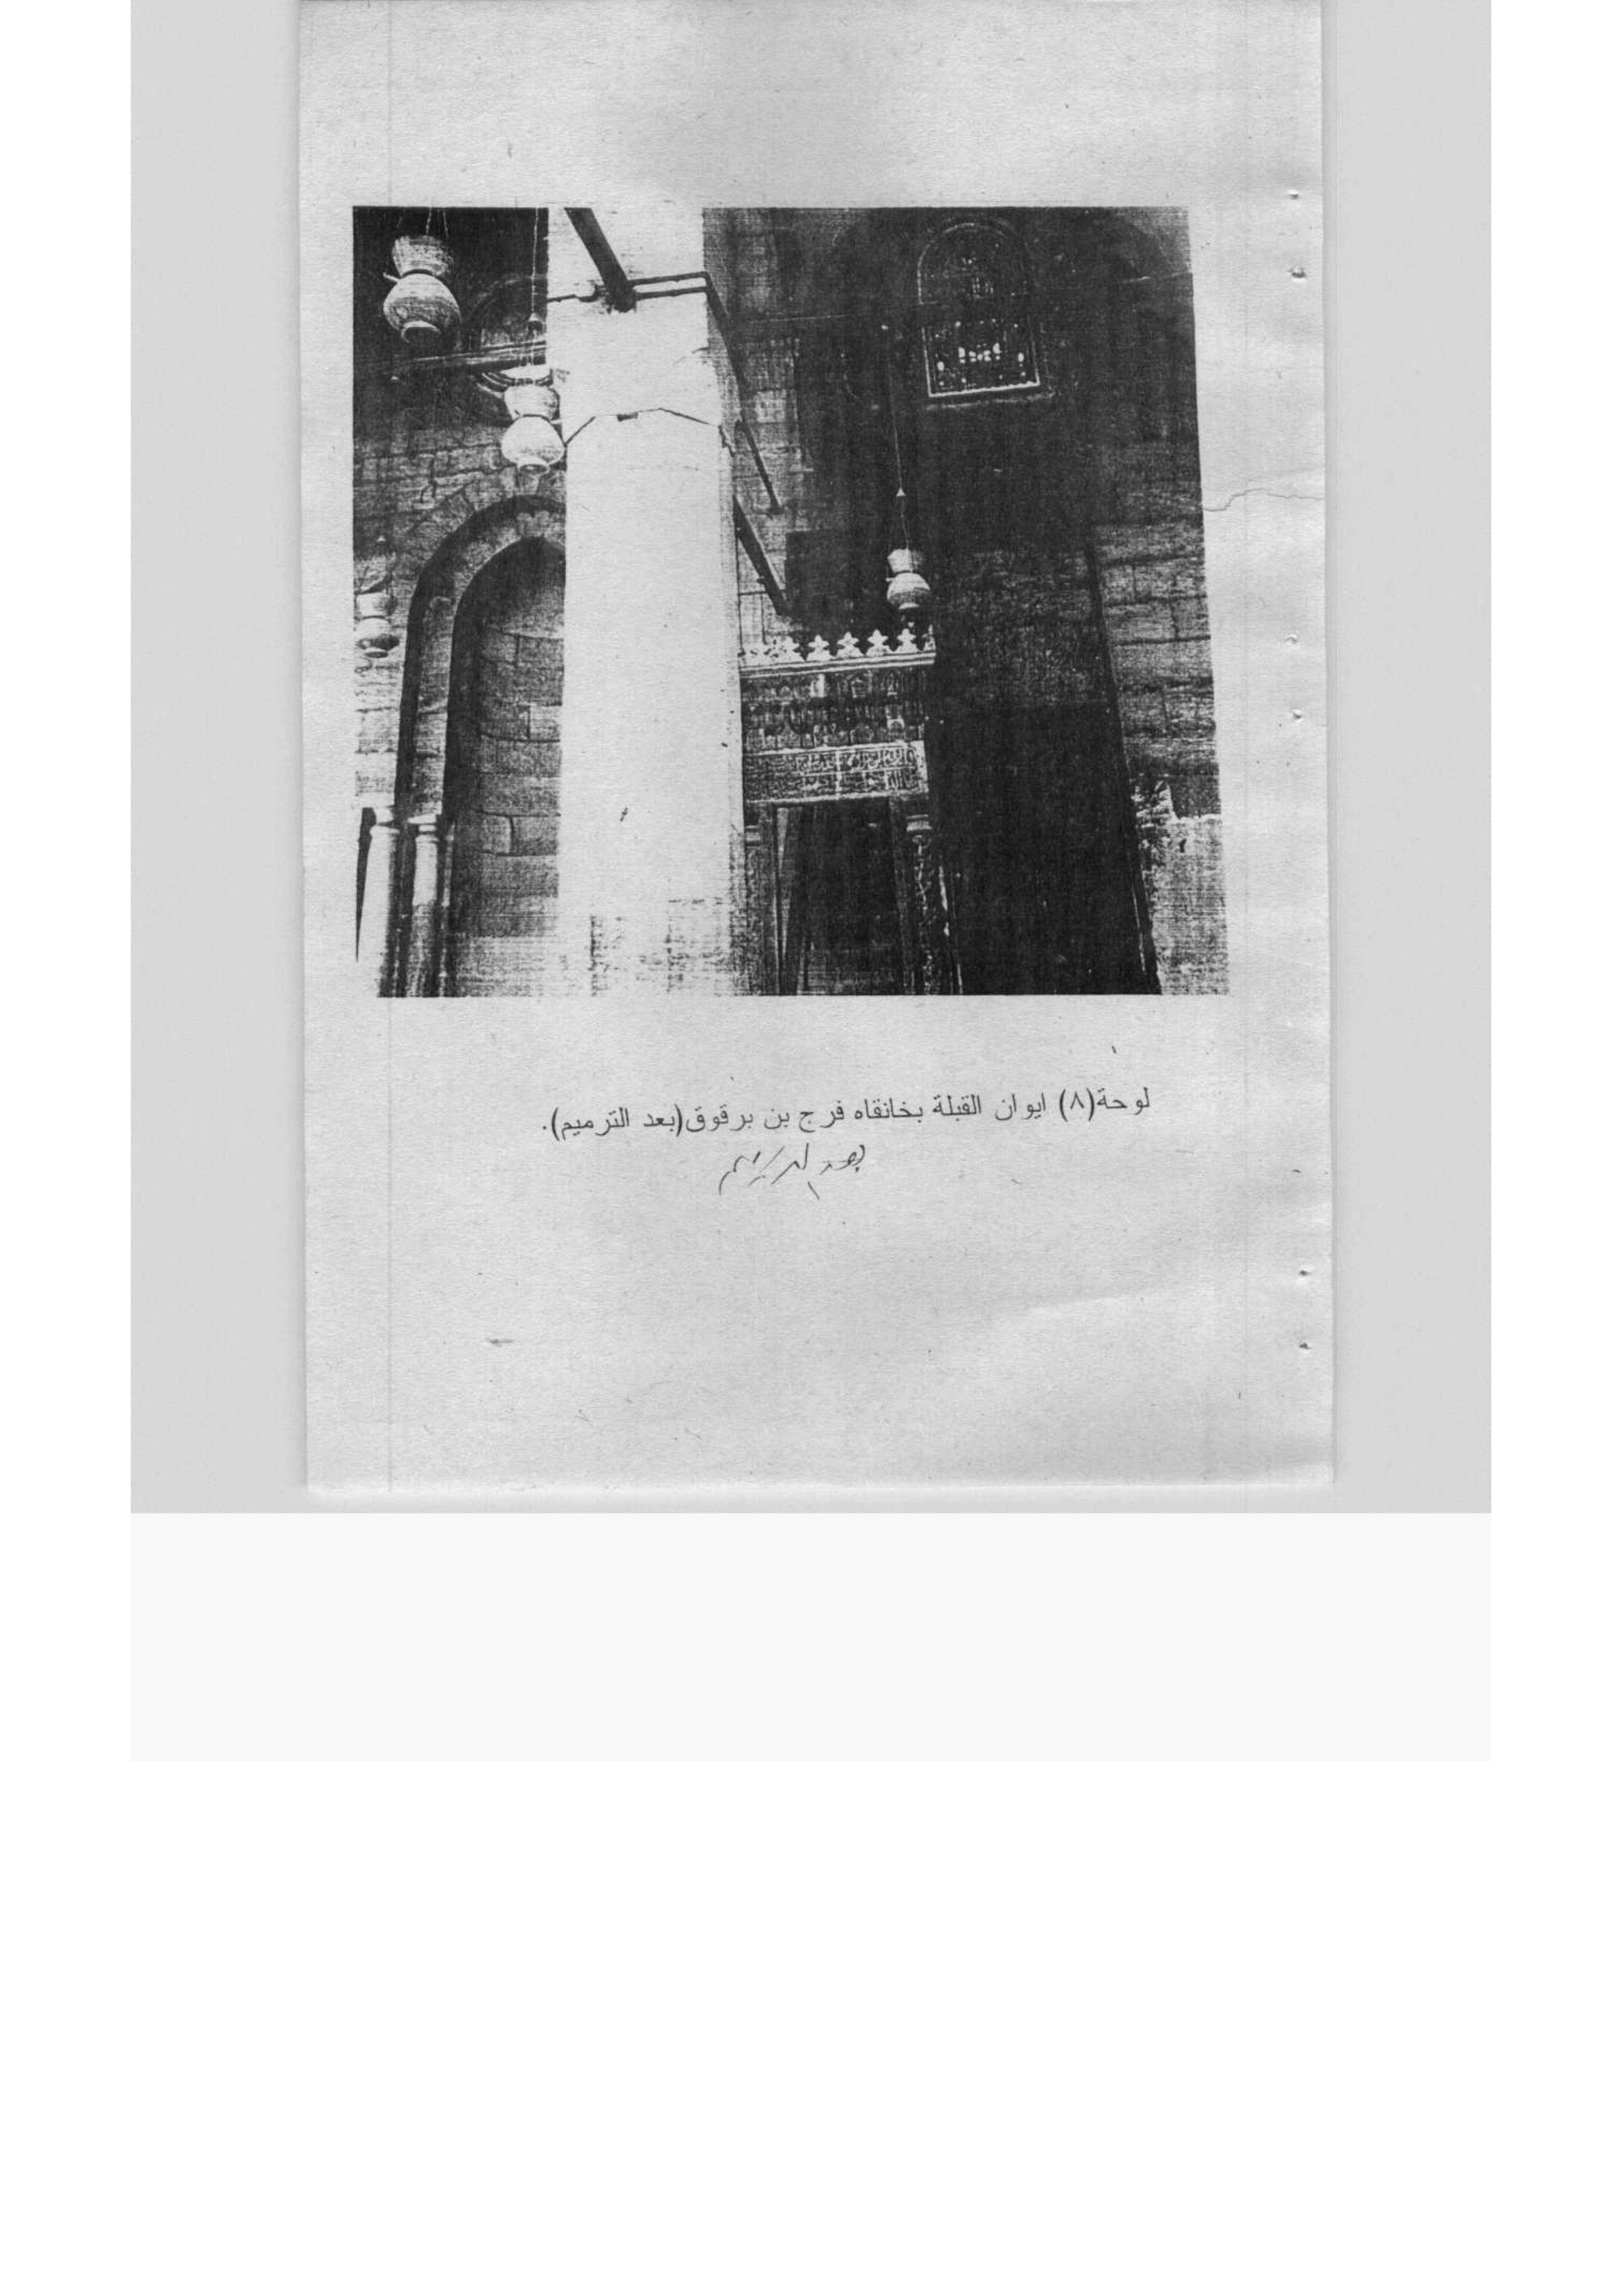 لوحة(٨) ايوان القبلة بخانقاه فرج بن برقوق(بعد الترميم).
بعد الترميم